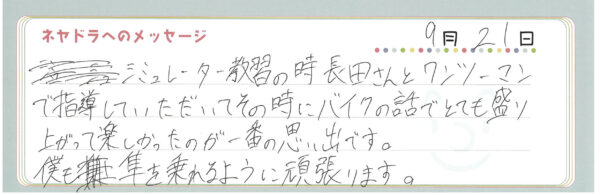 ネヤドラへのメッセージ
9月21日
シミュレーター教習の時長田さんとワンツーマン
で指導していただいてその時にバイクの話でとても盛り
上がって楽しかったのが一番の思い出です。
僕も隼を乗れるように頑張ります。